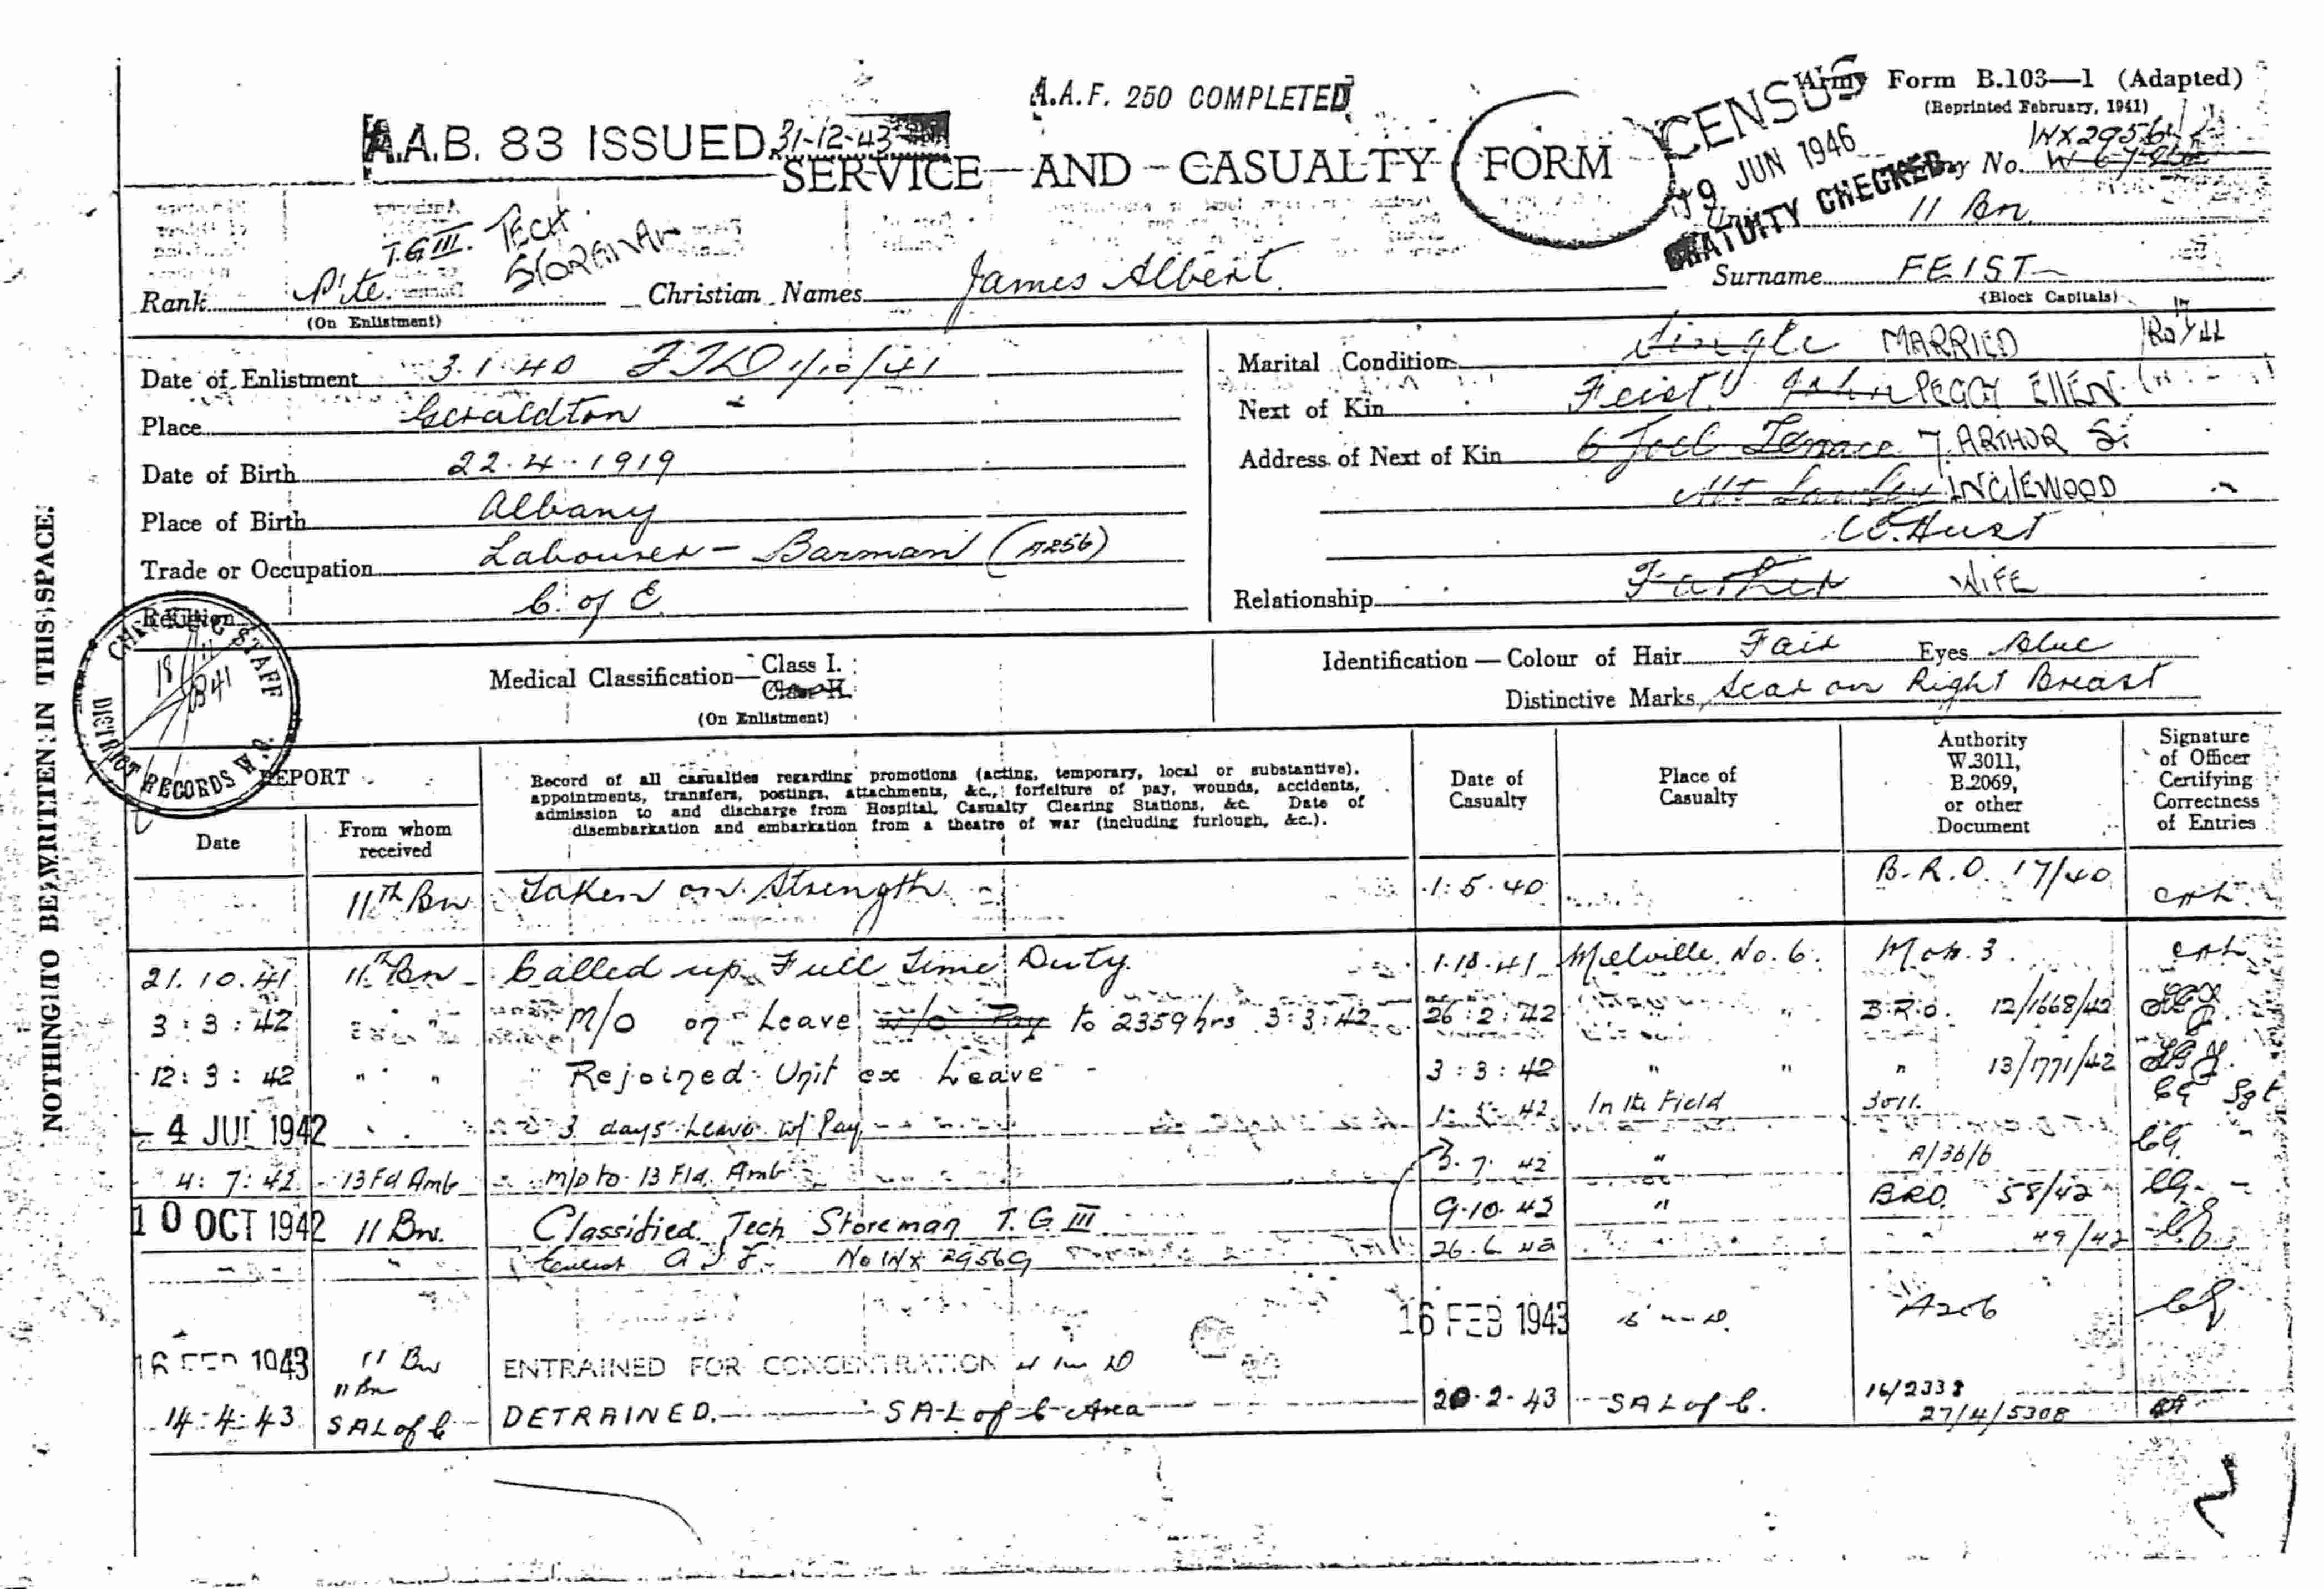 A.A.F. 250 COMPLETED
Army Form B.103—1 (Adapted)
(Reprinted February, 1941)
A.A.B. 83 ISSUED 31-12-43
CENSUS
19 JUN 1946
GRATUITY CHECKED
SERVICE AND CASUALTY FORM
No.
11 Bn
T.G III. TECH STOREMAN
Rank Pite. Christian Names James Albert. Surname FEIST
(On Enlistment) (Block Capitals)
Date of Enlistment 3.1.40 FTD 1/10/41
Place Geraldton
Date of Birth 22.4.1919
Place of Birth Albany
Trade or Occupation Labourer - Barman (A256)
Religion C. of E.
Marital Condition Single MARRIED
Next of Kin Feist John PEGGY ELLEN
Address of Next of Kin 6 Joel Terrace 7 ARTHUR St
Mt Lawley INGLEWOOD
W. Aust
Relationship Father WIFE
Medical Classification— Class I.
Class II.
(On Enlistment)
Identification — Colour of Hair Fair Eyes Blue
Distinctive Marks Scar on Right Breast
STAFF
DISTRICT RECORDS W.A.
NOTHING TO BE WRITTEN IN THIS SPACE.
REPORT
Date
From whom received
Record of all casualties regarding promotions (acting, temporary, local or substantive),
appointments, transfers, postings, attachments, &c., forfeiture of pay, wounds, accidents,
admission to and discharge from Hospital, Casualty Clearing Stations, &c. Date of
disembarkation and embarkation from a theatre of war (including furlough, &c.).
Date of Casualty
Place of Casualty
Authority W.3011, B.2069, or other Document
Signature of Officer Certifying Correctness of Entries
11th Bn Taken on Strength 1.5.40 B.R.O. 17/40
21.10.41 11th Bn Called up Full Time Duty. 1.10.41 Melville No. 6. Mob. 3.
3:3:42 " " M/O on Leave w/o Pay to 2359 hrs 3:3:42 26:2:42 " B.R.O. 12/1668/42
12:3:42 " " Rejoined Unit ex Leave 3:3:42 " " " 13/1771/42
- 4 JUL 1942 3 days Leave w/ Pay 42 In the Field 3011. CG Sgt
4:7:42 13 Fd Amb m/o to 13 Fld. Amb 3.7.42 " A/36/6 CG
10 OCT 1942 11 Bn. Classified Tech Storeman T.G III 9.10.42 " BRO. 58/42 CG
" Enlist A I F. No WX 29569 26.6.42 49/42
16 FEB 1943 A206
16 FEB 1943 11 Bn ENTRAINED FOR CONCENTRATION
11 Bn
14-4-43 SAL of C DETRAINED. SAL of C Area 20-2-43 SAL of C. 16/2338
27/4/5308